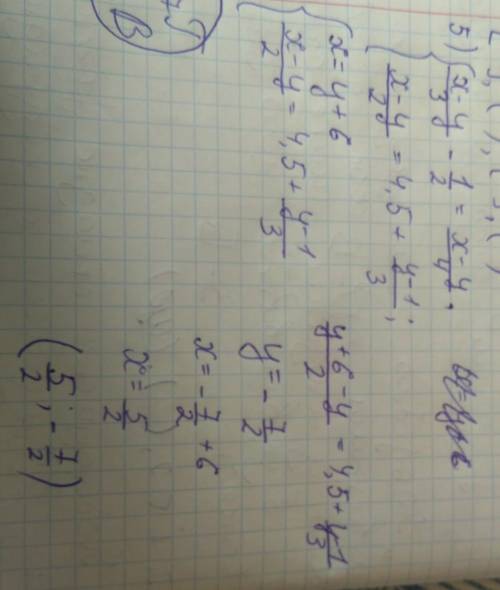 5) { (x-y)/3 - 1/2 = (x-y)/4,
(x-y)/2 = 4,5 + (y-1)/3;
{ x = y + 6
(x-y)/2 = 4,5 + (y-1)/3
(y+6-y)/2 = 4,5 + (y-1)/3
y = - 7/2
x = - 7/2 + 6
x = 5/2
(5/2 ; - 7/2)
В